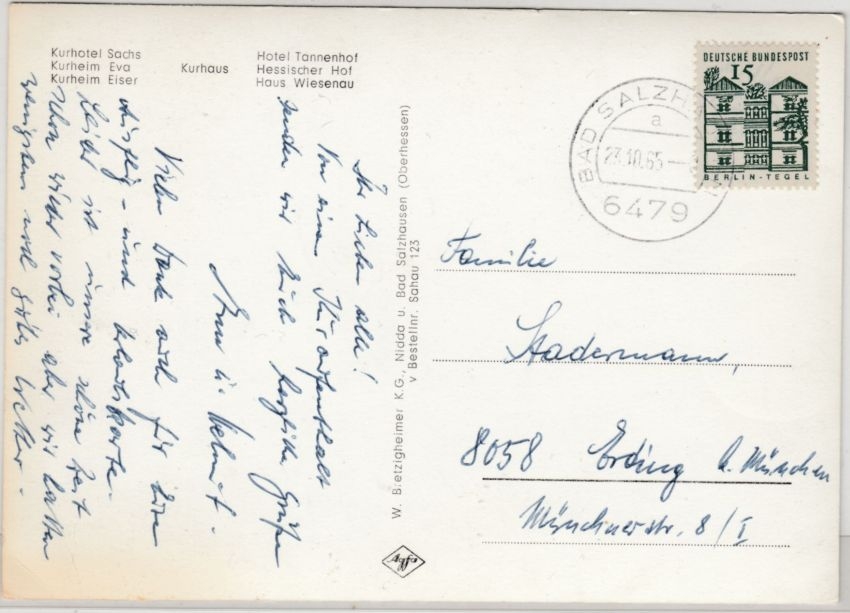 Kurhotel Sachs
Kurheim Eva
Kurheim Eiser
Kurhaus
Hotel Tannenhof
Hessischer Hof
Haus Wiesenau
Ihr Lieben alle!
Von einem Kuraufenthalt
senden wir Euch herzliche Grüße
Anni u. Helmut.
Vielen Dank auch für Eure
Ausflug- und Urlaubskarte.
Leider ist unsere schöne Zeit
schon wieder vorbei aber wir hatten
wenigstens noch gutes Wetter.
W. Bretzigheimer K.G., Nidda u. Bad Salzhausen (Oberhessen)
v Bestellnr. Sahau 123
Agfa
DEUTSCHE BUNDESPOST
15
BERLIN-TEGEL
BAD SALZH
a
23.10.65
6479
Familie
Stadermann,
8058 Erding b. München
Münchnerstr. 8/I